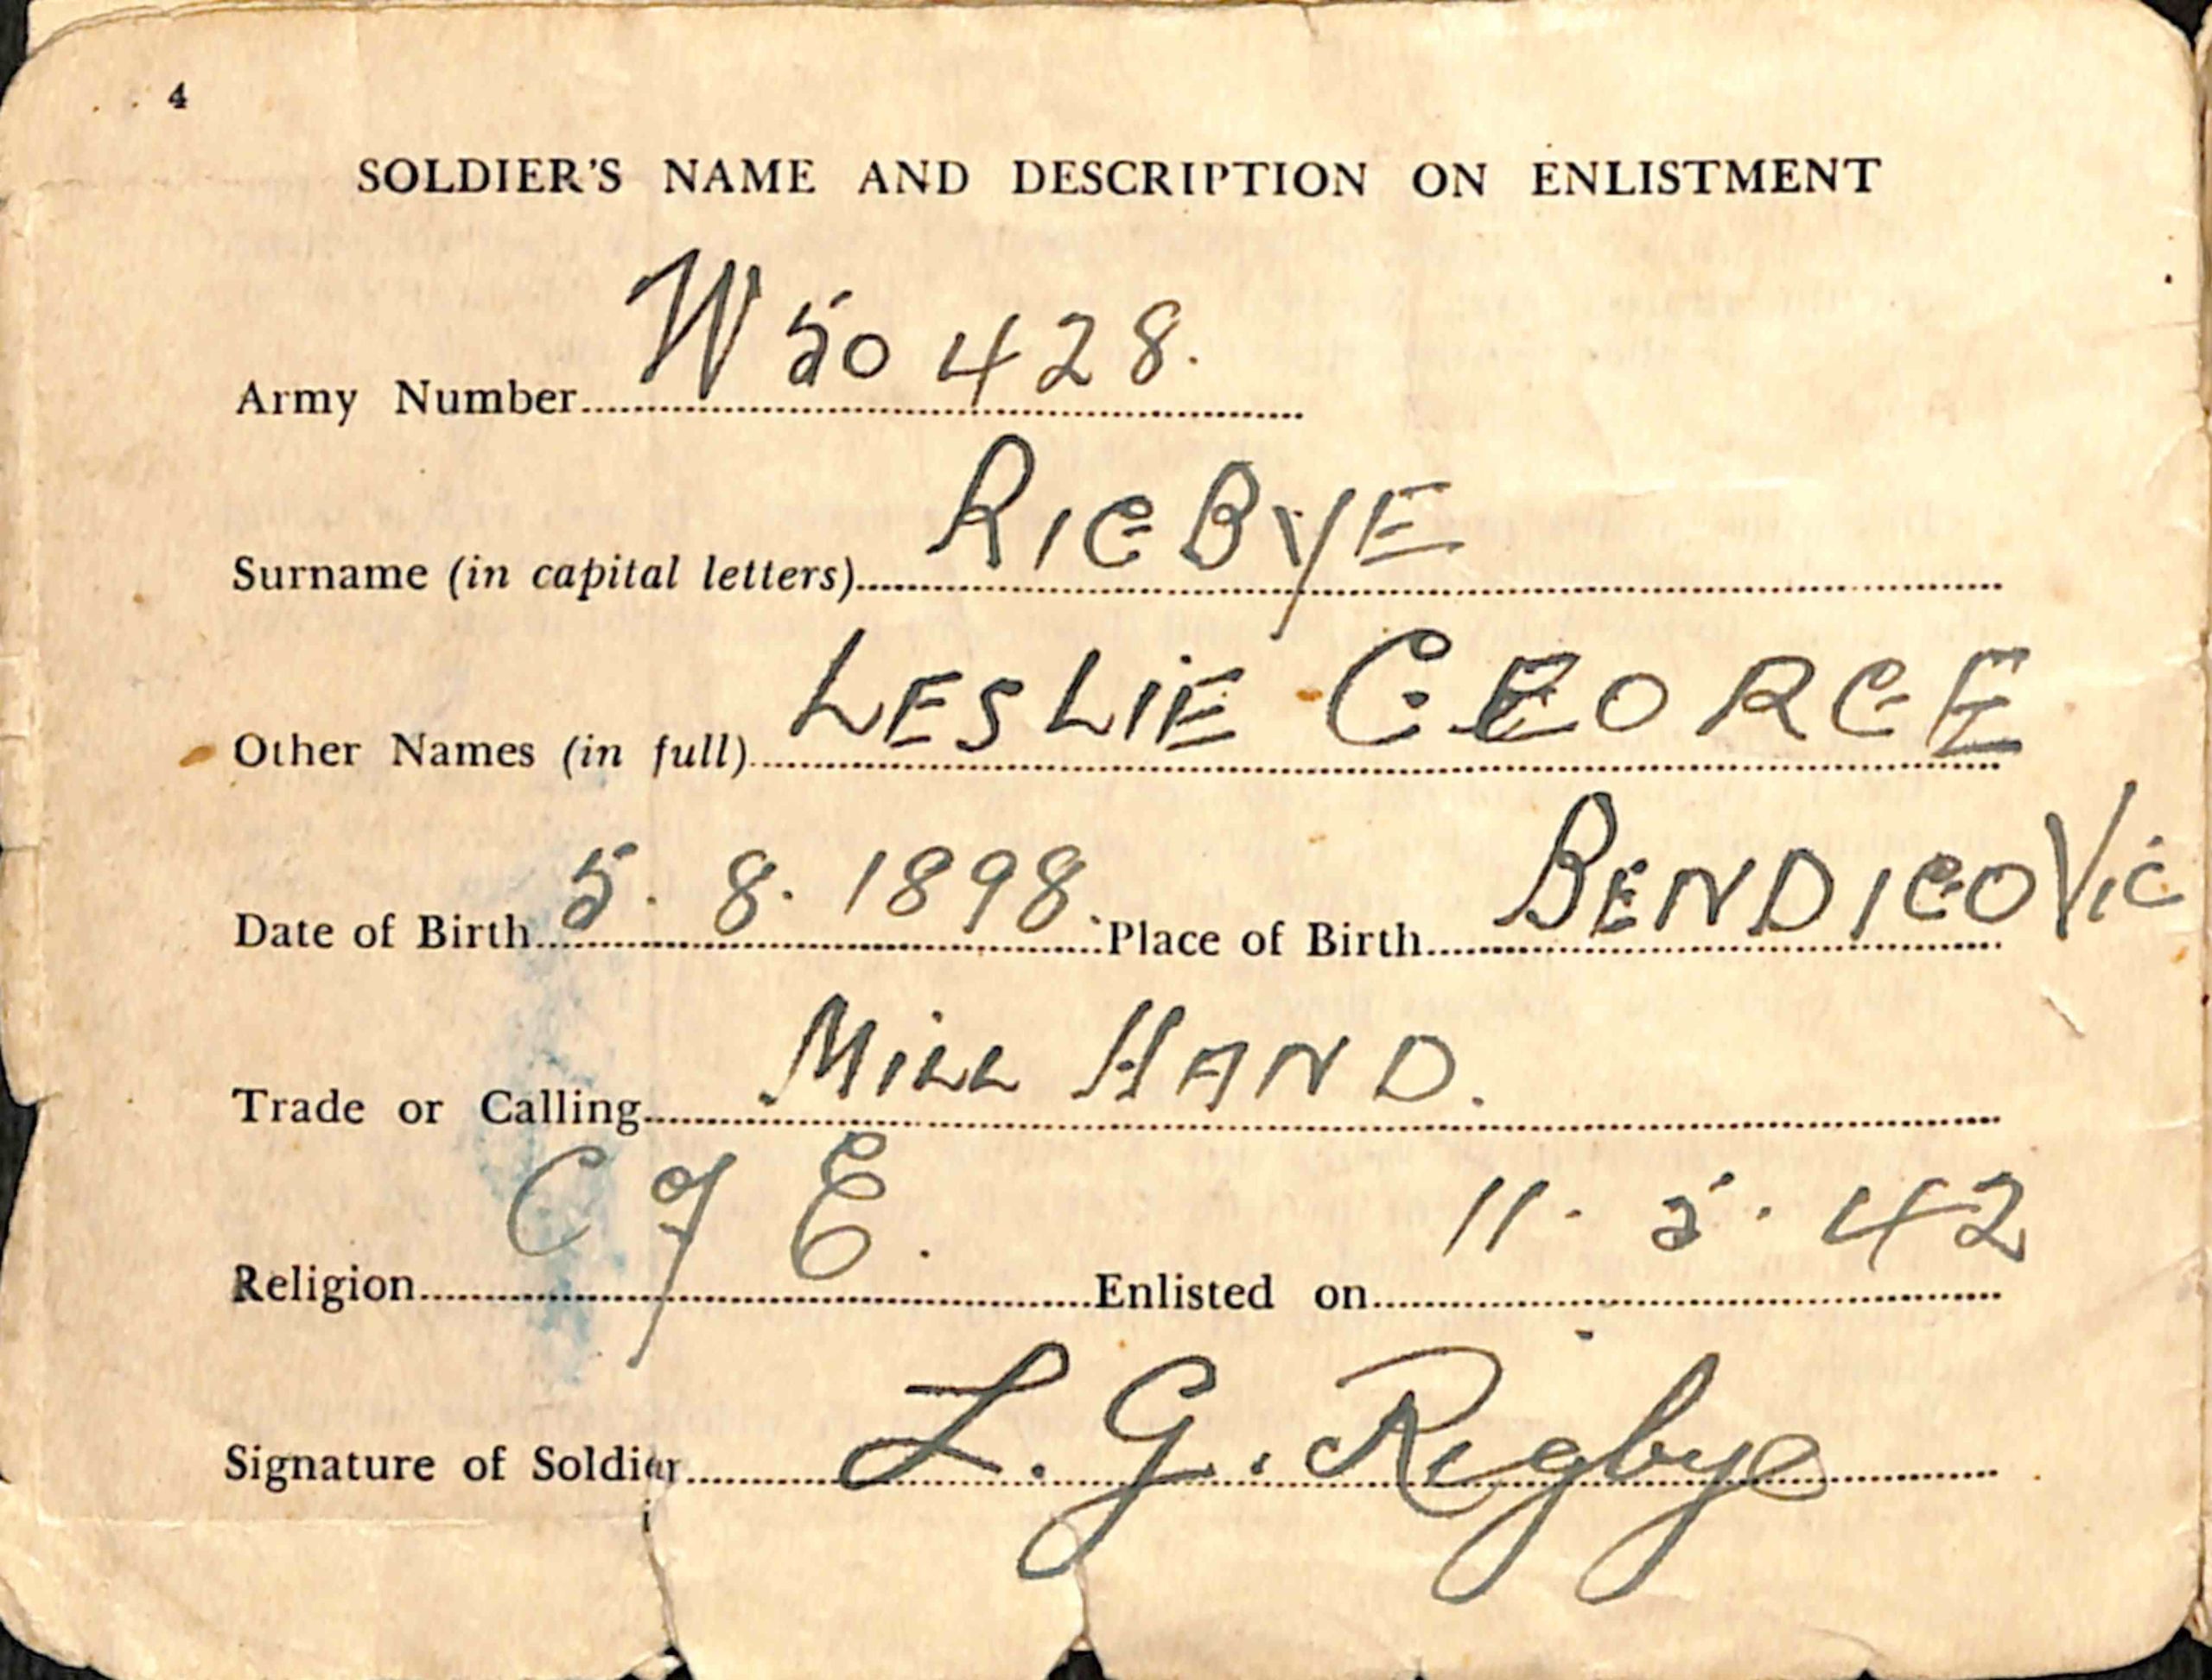 4
SOLDIER'S NAME AND DESCRIPTION ON ENLISTMENT
Army Number W50428.
Surname (in capital letters) RIGBYE
Other Names (in full) LESLIE GEORGE
Date of Birth 5.8.1898. Place of Birth BENDIGO VIC
Trade or Calling MILL HAND.
Religion C of E. Enlisted on 11.5.42
Signature of Soldier L. G. Rigbye